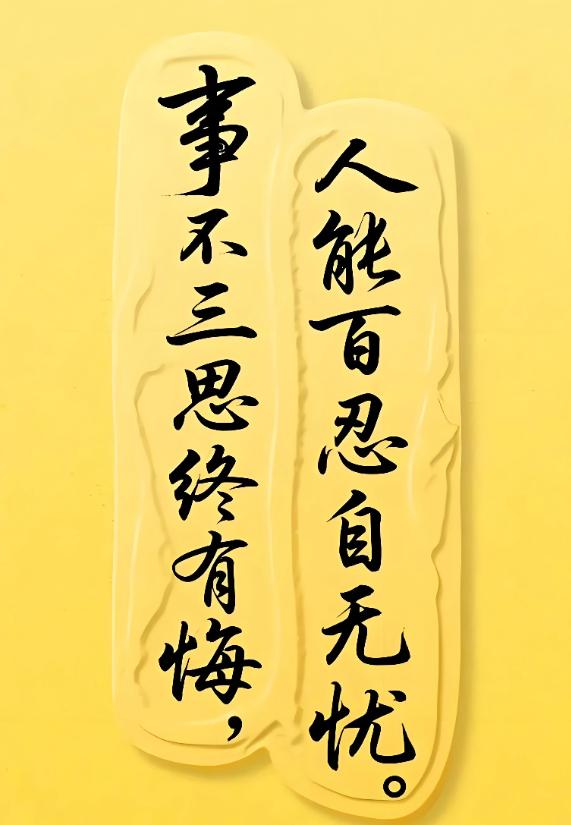 事不三思终有悔，
人能百忍自无忧。